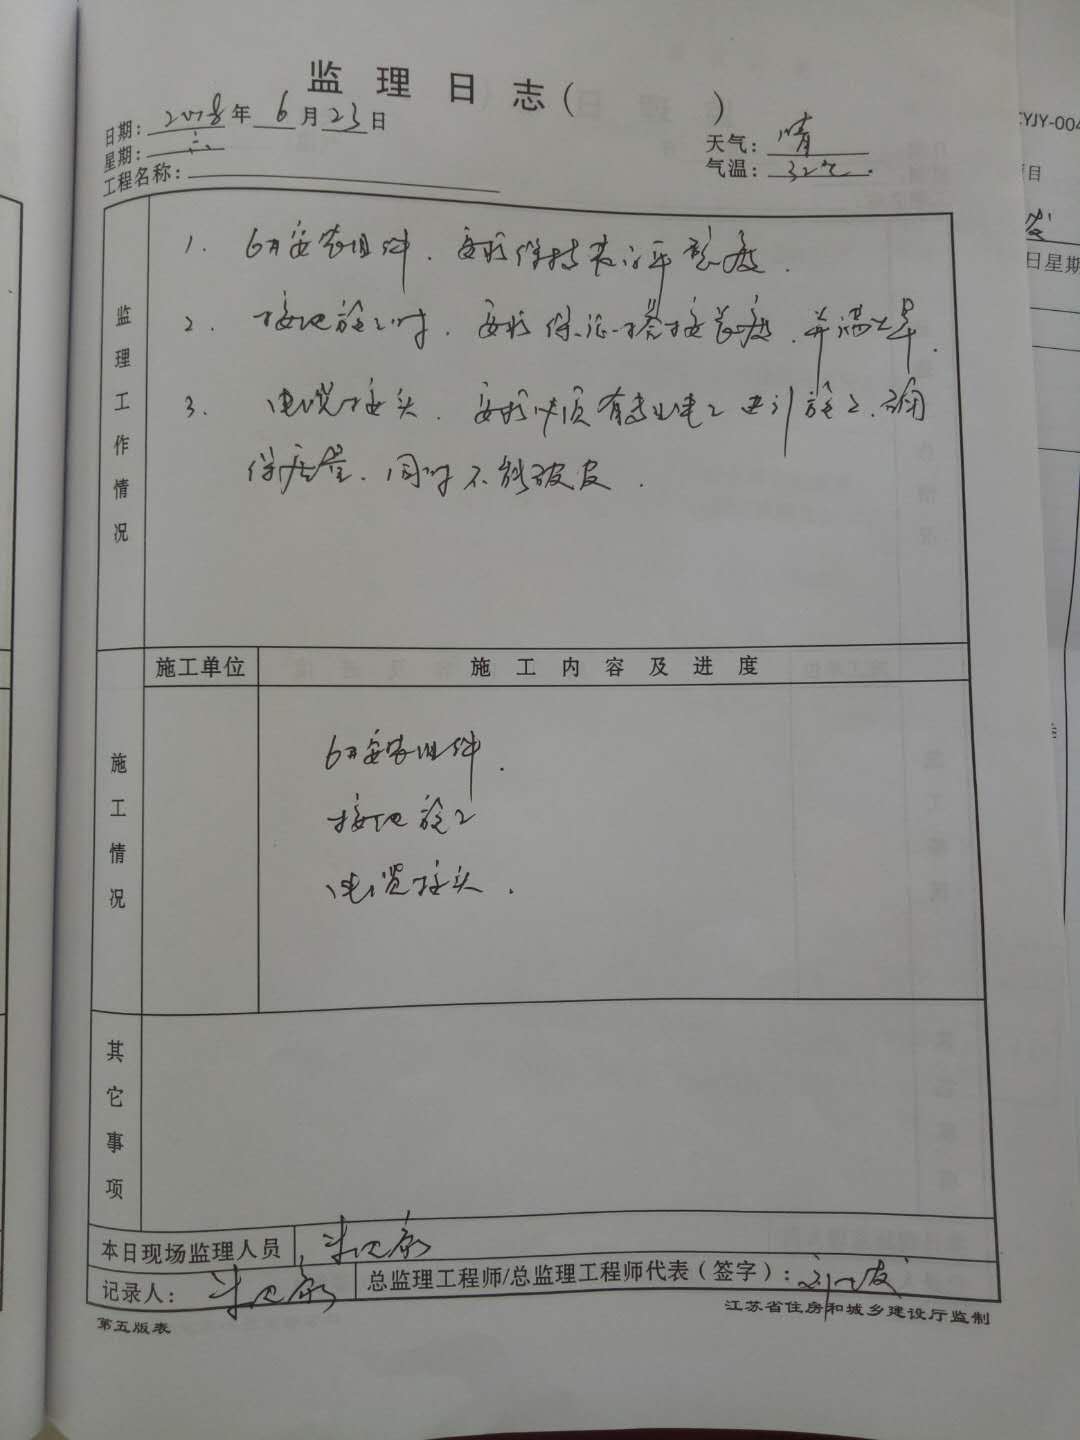 监理日志( )
日期: 2018年6月23日
星期: 六
天气: 晴
气温: 32℃.
工程名称:
监理工作情况
1. 6#安装组件. 要求保持表
2. 接地施工时. 要求保证搭接长度. 并满焊.
3. 电缆接头. 要求必须有专业电工进行施工. 确
保质量. 同时不能破皮.
施工单位 施工内容及进度
施工情况
6#安装组件.
接地施工
电缆接头.
其它事项
本日现场监理人员
记录人:
总监理工程师/总监理工程师代表(签字):
第五版表
江苏省住房和城乡建设厅监制
CYJY-004
目
日星期